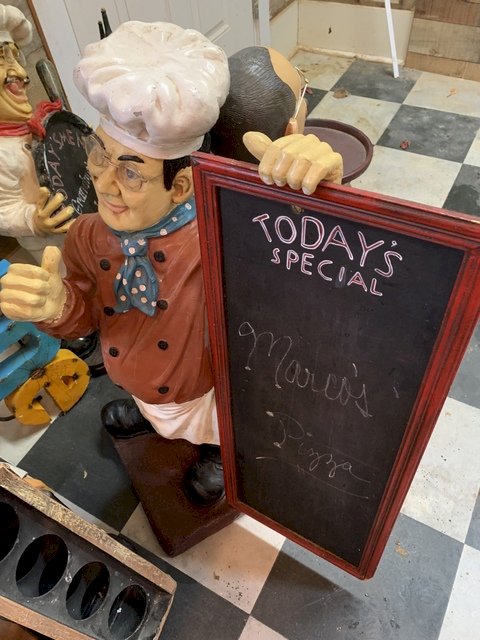 TODAY'S
SPECIAL
Marco's
Pizza